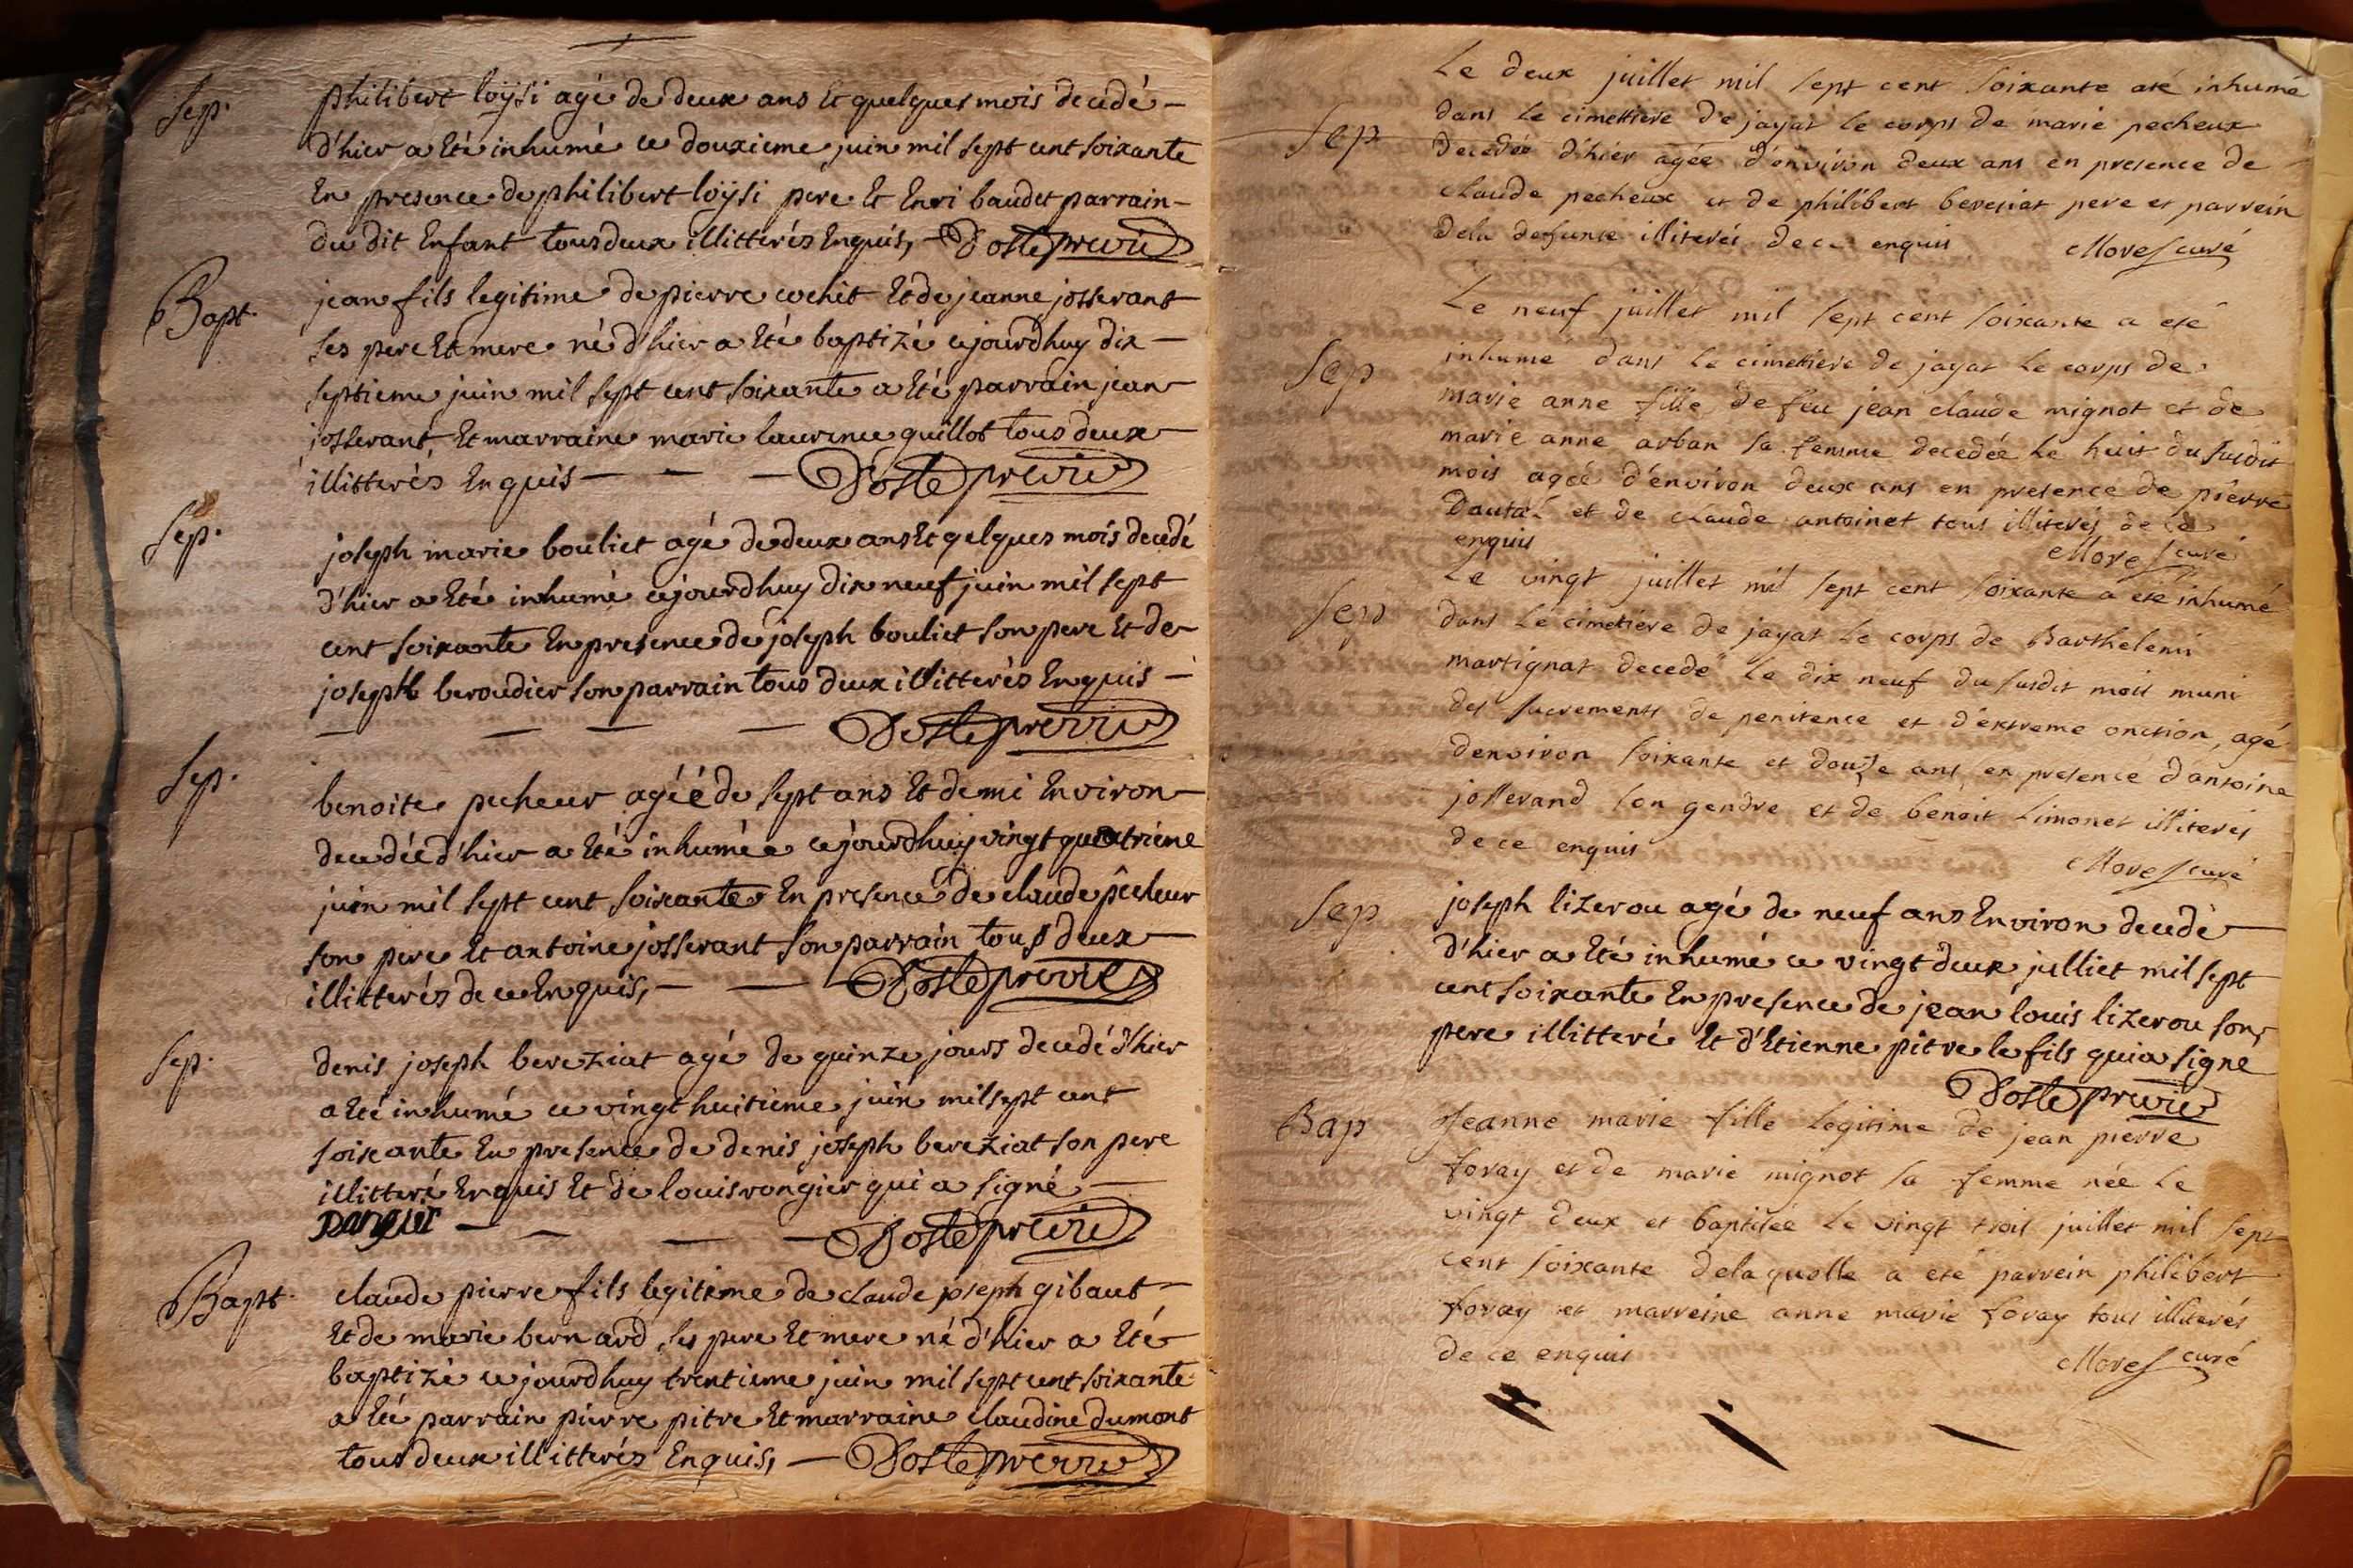 Sep.
philibert loÿsi agé de deux ans et quelques mois decedé
d'hier a été inhumé ce douzieme juin mil sept cent soixante
en presence de philibert loÿsi pere et enri baudet parrain
du dit enfant tous deux illitterés enquis,
Bapt.
jean fils legitime de pierre cochet et de jeanne josserant
ses pere et mere né d'hier a été baptizé cejourdhuy dix
septieme juin mil sept cent soixante a été parrain jean
josserant, et marraine marie laurence guillot tous deux
illitterés enquis
Sep.
joseph marie bouliet agé de deux ans et qelques mois decedé
d'hier a été inhumé cejourdhuy dix neuf juin mil sept
cent soixante en presence de joseph bouliet son pere et de
joseph beroudier son parrain tous deux illitterés enquis
Sep.
benoite pecheur agéé de sept ans et demi environ
decedéé d'hier a été inhumée cejourdhuy vingt quatriéme
juin mil sept cent soixante en presence de claude pêcheur
son pere et antoine josserant son parrain tous deux
illitterés de ce enquis,
Sep.
denis joseph bereziat agé de quinze jours decedé d'hier
a été inhumé ce vingt huitieme juin mil sept cent
soixante en presence de denis joseph bereziat son pere
illitteré enquis et de louis rongier qui a signé
Bapt.
claude pierre fils legitime de claude joseph gibaut
et de marie bernard ses pere et mere né d'hier a été
baptizé cejourdhuy trentieme juin mil sept cent soixante
a été parrain pierre pitre et marraine claudine dumont
tous deux illitterés enquis,
Le deux juillet mil sept cent soixante a été inhumé
Sep
dans le cimettiere de jayat le corps de marie pecheux
decedéé d'hier agée d'environ deux ans en presence de
claude pecheux et de philibert beresiat pere et parrein
dela defunte illiterés de ce enquis Morel curé
Le neuf juillet mil sept cent soixante a eté
Sep
inhumé dans le cimettiere de jayat le corps de
marie anne fille de feu jean claude mignot et de
marie anne arban sa femme decedéé le huit du susdit
mois agéé d'environ deux ans en presence de pierre
et de claude antoinet tous illiterés de ce
enquis Morel curé
Le vingt juillet mil sept cent soixante a été inhumé
Sep
dans le cimetiere de jayat le corps de Barthelemi
martignat decedé le dix neuf du susdit mois muni
des sacrements de penitence et d'extreme onction, agé
denviron soixante et douze ans en presence d'antoine
josserand son gendre et de benoit limonet illiterés
de ce enquis Morel curé
Sep
joseph lizerou agé de neuf ans environ decedé
d'hier a été inhumé ce vingt deux julliet mil sept
cent soixante en presence de jean louis lizerou son
pere illitteré et d'etienne pitre le fils qui a signé
Bap
Jeanne marie fille legitime de jean pierre
foray et de marie mignot sa femme née le
vingt deux et baptiséé le vingt trois juillet mil sept
cent soixante delaquelle a eté parrein philibert
foray et marreine anne marie foray tous illiterés
de ce enquis Morel curé